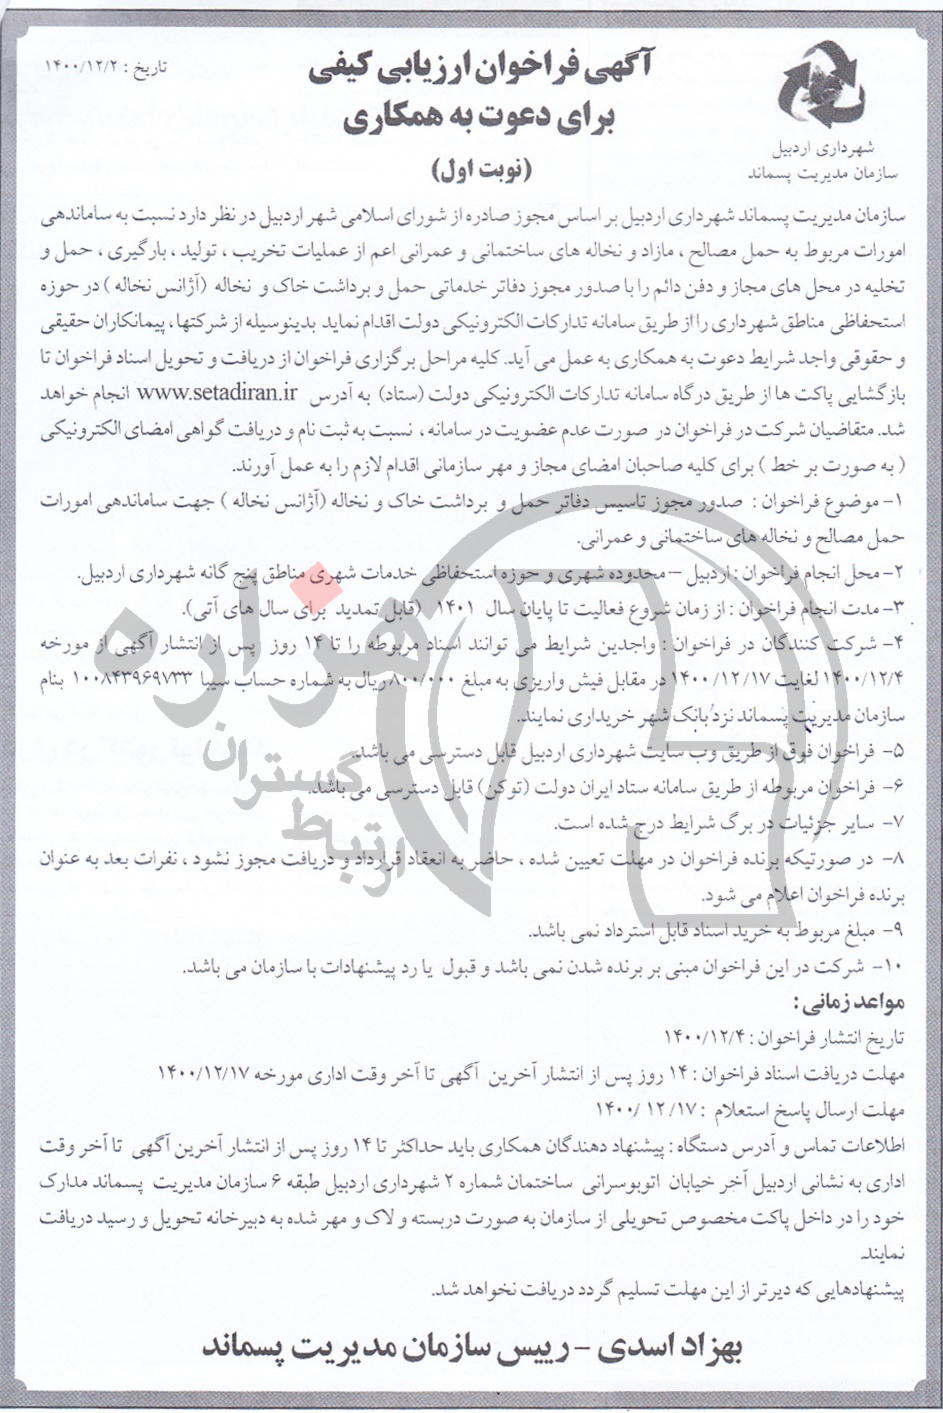 آگهی فراخوان ارزیابی کیفی
برای دعوت به همکاری
(نوبت اول)
تاریخ : ۱۴۰۰/۱۲/۲
شهرداری اردبیل
سازمان مدیریت پسماند
سازمان مدیریت پسماند شهرداری اردبیل بر اساس مجوز صادره از شورای اسلامی شهر اردبیل در نظر دارد نسبت به ساماندهی
امورات مربوط به حمل مصالح ، مازاد و نخاله های ساختمانی و عمرانی اعم از عملیات تخریب ، تولید ، بارگیری ، حمل و
تخلیه در محل های مجاز و دفن دائم را با صدور مجوز دفاتر خدماتی حمل و برداشت خاک و نخاله (آژانس نخاله ) در حوزه
استحفاظی مناطق شهرداری را از طریق سامانه تدارکات الکترونیکی دولت اقدام نماید بدینوسیله از شرکتها، پیمانکاران حقیقی
و حقوقی واجد شرایط دعوت به همکاری به عمل می آید. کلیه مراحل برگزاری فراخوان از دریافت و تحویل اسناد فراخوان تا
بازگشایی پاکت ها از طریق درگاه سامانه تدارکات الکترونیکی دولت (ستاد) به آدرس www.setadiran.ir انجام خواهد
شد. متقاضیان شرکت در فراخوان در صورت عدم عضویت در سامانه ، نسبت به ثبت نام و دریافت گواهی امضای الکترونیکی
( به صورت بر خط ) برای کلیه صاحبان امضای مجاز و مهر سازمانی اقدام لازم را به عمل آورند.
۱- موضوع فراخوان : صدور مجوز تاسیس دفاتر حمل و برداشت خاک و نخاله (آژانس نخاله ) جهت ساماندهی امورات
حمل مصالح و نخاله های ساختمانی و عمرانی.
۲- محل انجام فراخوان : اردبیل – محدوده شهری و حوزه استحفاظی خدمات شهری مناطق پنج گانه شهرداری اردبیل.
۳- مدت انجام فراخوان : از زمان شروع فعالیت تا پایان سال ۱۴۰۱ (قابل تمدید برای سال های آتی).
۴- شرکت کنندگان در فراخوان : واجدین شرایط می توانند اسناد مربوطه را تا ۱۴ روز پس از انتشار آگهی از مورخه
۱۴۰۰/۱۲/۴ لغایت ۱۴۰۰/۱۲/۱۷ در مقابل فیش واریزی به مبلغ ۸۰۰/۰۰۰ ریال به شماره حساب سیبا ۱۰۰۸۴۳۹۶۹۷۳۳ بنام
سازمان مدیریت پسماند نزد بانک شهر خریداری نمایند.
۵- فراخوان فوق از طریق وب سایت شهرداری اردبیل قابل دسترسی می باشد.
۶- فراخوان مربوطه از طریق سامانه ستاد ایران دولت (توکن) قابل دسترسی می باشد.
۷- سایر جزئیات در برگ شرایط درج شده است.
۸- در صورتیکه برنده فراخوان در مهلت تعیین شده ، حاضر به انعقاد قرارداد و دریافت مجوز نشود ، نفرات بعد به عنوان
برنده فراخوان اعلام می شود.
۹- مبلغ مربوط به خرید اسناد قابل استرداد نمی باشد.
۱۰- شرکت در این فراخوان مبنی بر برنده شدن نمی باشد و قبول یا رد پیشنهادات با سازمان می باشد.
مواعد زمانی :
تاریخ انتشار فراخوان : ۱۴۰۰/۱۲/۴
مهلت دریافت اسناد فراخوان : ۱۴ روز پس از انتشار آخرین آگهی تا آخر وقت اداری مورخه ۱۴۰۰/۱۲/۱۷
مهلت ارسال پاسخ استعلام : ۱۴۰۰/ ۱۲/ ۱۷
اطلاعات تماس و آدرس دستگاه : پیشنهاد دهندگان همکاری باید حداکثر تا ۱۴ روز پس از انتشار آخرین آگهی تا آخر وقت
اداری به نشانی اردبیل آخر خیابان اتوبوسرانی ساختمان شماره ۲ شهرداری اردبیل طبقه ۶ سازمان مدیریت پسماند مدارک
خود را در داخل پاکت مخصوص تحویلی از سازمان به صورت دربسته و لاک و مهر شده به دبیرخانه تحویل و رسید دریافت
نمایند.
پیشنهادهایی که دیرتر از این مهلت تسلیم گردد دریافت نخواهد شد.
بهزاد اسدی - رییس سازمان مدیریت پسماند
هزاره
گستران
ارتباط